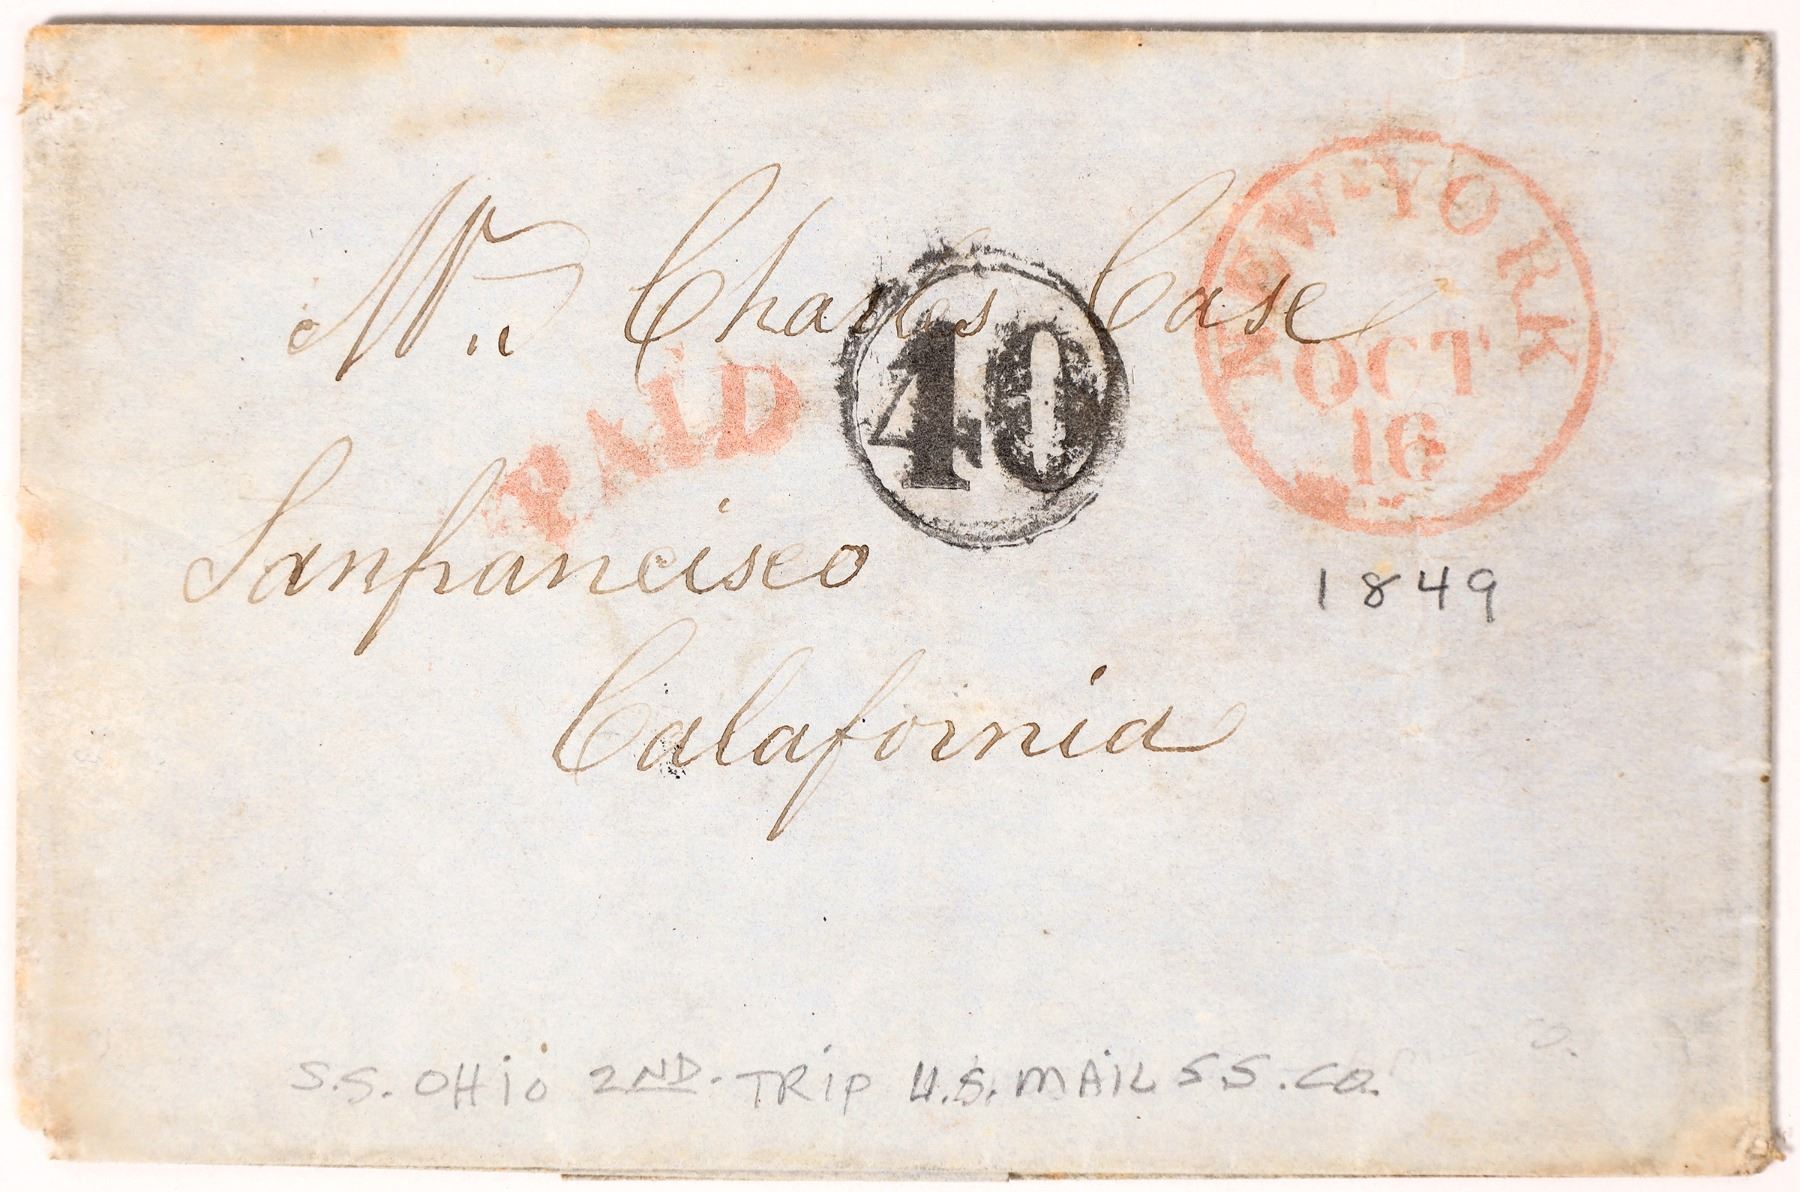 Mr. Charles Case
NEW-YORK
OCT
16
PAID
40
Sanfrancisco
1849
Calafornia
S.S. OHiO 2ND. TRiP U.S. MAiL S S. CO.